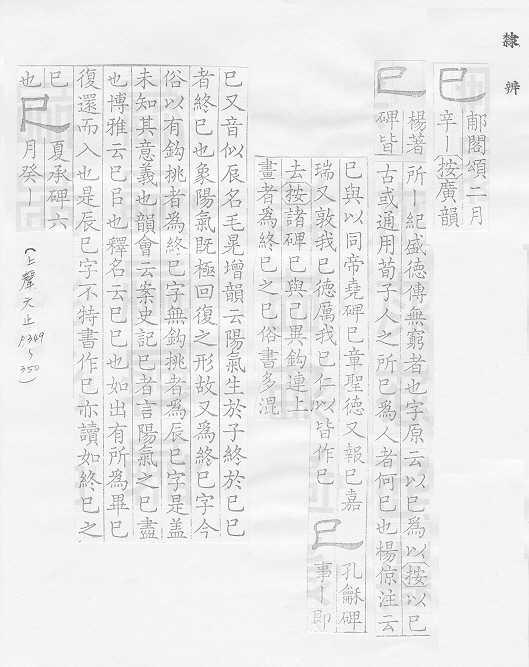 隸辨
巳 郙閣頌二月
辛丨按廣韻
巳 楊著
碑皆
所丨紀盛德傳無窮者也字原云以巳為以按以巳
古或通用荀子人之所巳為人者何巳也楊倞注云
巳與以同帝堯碑巳章聖德又報巳嘉
瑞又敦我巳德厲我巳仁以皆作巳
巳 孔龢碑
事丨即
去按諸碑巳與己異鈎連上
畫者為終巳之巳俗書多混
巳又音似辰名毛晃增韻云陽氣生於子終於巳巳
者終巳也象陽氣既極回復之形故又為終巳字今
俗以有鈎挑者為終巳字無鈎挑者為辰巳字是蓋
未知其意義也韻會云案史記巳者言陽氣之巳盡
也博雅云巳㠯也釋名云巳巳也如出有所為畢巳
復還而入也是辰巳字不特書作巳亦讀如終巳之
巳
也
巳 夏承碑六
月癸丨
(上聲六止 P349~350)